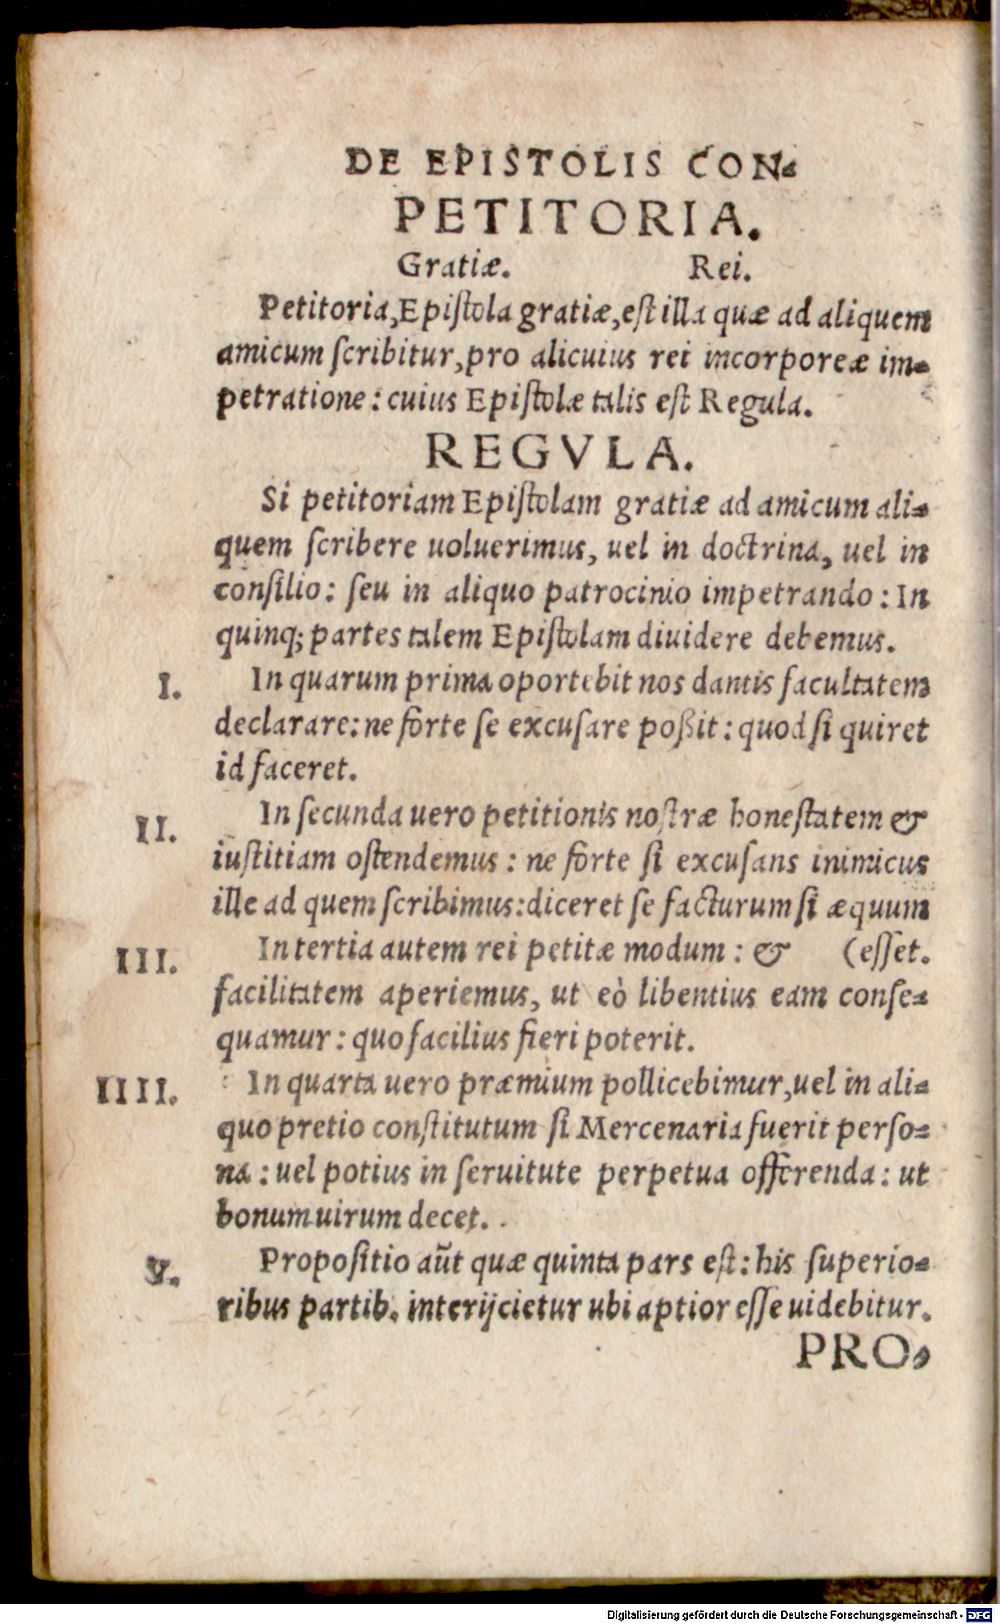 DE EPISTOLIS CON-
PETITORIA.
Gratiæ. Rei.
Petitoria, Epistola gratiæ, est illa quæ ad aliquem
amicum scribitur, pro alicuius rei incorporeæ im-
petratione: cuius Epistolæ talis est Regula.
REGVLA.
Si petitoriam Epistolam gratiæ ad amicum ali-
quem scribere uoluerimus, uel in doctrina, uel in
consilio: seu in aliquo patrocinio impetrando: In
quinq; partes talem Epistolam diuidere debemus.
I. In quarum prima oportebit nos dantis facultatem
declarare: ne forte se excusare poßit: quod si quiret
id faceret.
II. In secunda uero petitionis nostræ honestatem &
iustitiam ostendemus: ne forte si excusans inimicus
ille ad quem scribimus: diceret se facturum si æquum
III. In tertia autem rei petitæ modum: & (esset.
facilitatem aperiemus, ut eò libentius eam conse-
quamur: quo facilius fieri poterit.
IIII. In quarta uero præmium pollicebimur, uel in ali-
quo pretio constitutum si Mercenaria fuerit perso-
na: uel potius in seruitute perpetua offerenda: ut
bonum uirum decet.
V. Propositio aut̃ quæ quinta pars est: his superio-
ribus partib. interijcietur ubi aptior esse uidebitur.
PRO-
Digitalisierung gefördert durch die Deutsche Forschungsgemeinschaft - DFG